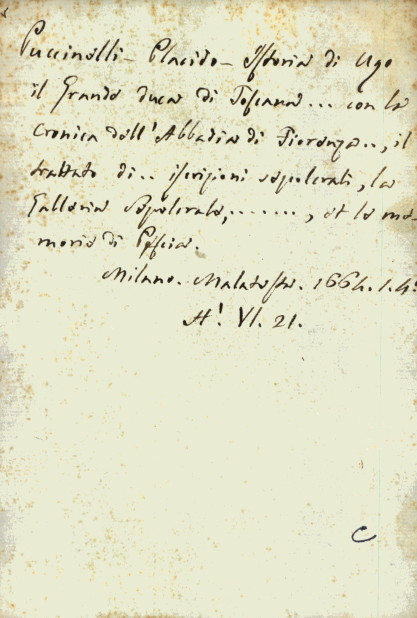 Puccinelli - Placido - Istoria di Ugo
il Grande duca di Toscana... con la
Cronica dell'Abbadia di Fiorenza.., il
trattato di.. iscrizioni sepolcrali, la
Galleria Sepolcrale,......., et le me-
morie di Pescia.
Milano. Malatesta. 1664. 1. 4°
A'. VI. 21.
C